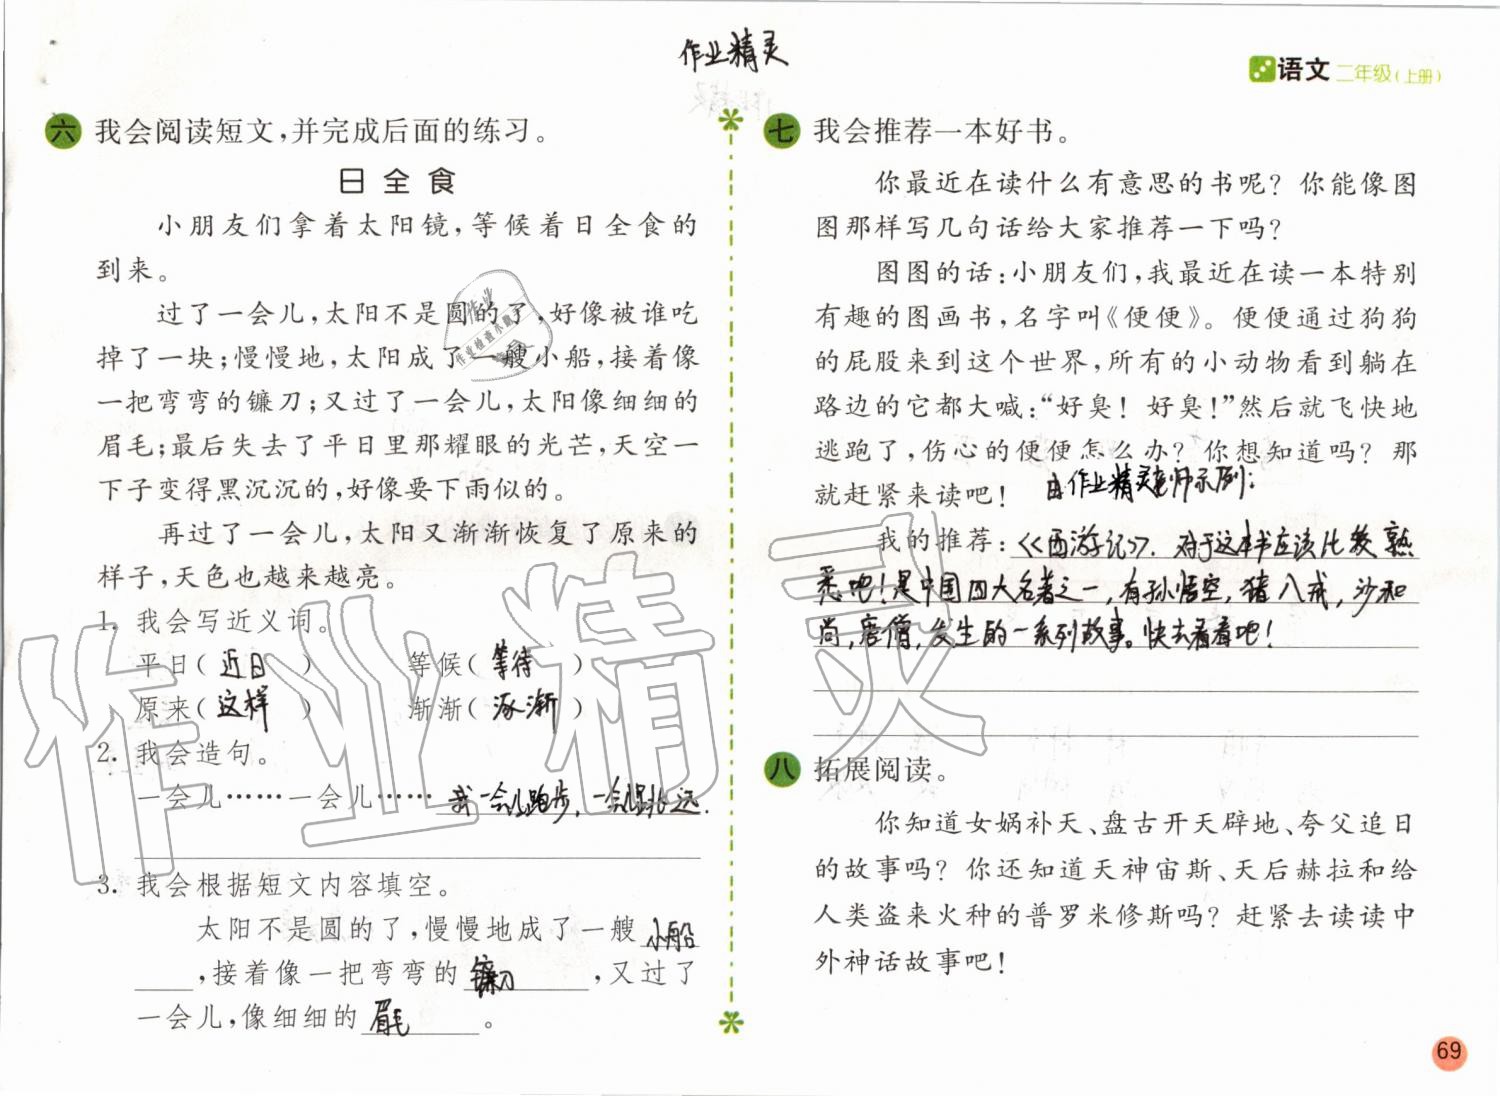 作业精灵
语文 二年级(上册)
六 我会阅读短文,并完成后面的练习。
日全食
小朋友们拿着太阳镜,等候着日全食的
到来。
过了一会儿,太阳不是圆的了,好像被谁吃
掉了一块;慢慢地,太阳成了一艘小船,接着像
一把弯弯的镰刀;又过了一会儿,太阳像细细的
眉毛;最后失去了平日里那耀眼的光芒,天空一
下子变得黑沉沉的,好像要下雨似的。
再过了一会儿,太阳又渐渐恢复了原来的
样子,天色也越来越亮。
1. 我会写近义词。
平日( 近日 ) 等候( 等待 )
原来( 这样 ) 渐渐( 逐渐 )
2. 我会造句。
一会儿……一会儿…… 我一会儿跑步,一会儿跳远.
3. 我会根据短文内容填空。
太阳不是圆的了,慢慢地成了一艘 小船
,接着像一把弯弯的 镰刀 ,又过了
一会儿,像细细的 眉毛 。
七 我会推荐一本好书。
你最近在读什么有意思的书呢?你能像图
图那样写几句话给大家推荐一下吗?
图图的话:小朋友们,我最近在读一本特别
有趣的图画书,名字叫《便便》。便便通过狗狗
的屁股来到这个世界,所有的小动物看到躺在
路边的它都大喊:“好臭!好臭!”然后就飞快地
逃跑了,伤心的便便怎么办?你想知道吗?那
就赶紧来读吧! 由作业精灵老师示例:
我的推荐:《西游记》.对于这本书应该比较熟
悉吧!是中国四大名著之一,有孙悟空,猪八戒,沙和
尚,唐僧,发生的一系列故事。快去看看吧!
八 拓展阅读。
你知道女娲补天、盘古开天辟地、夸父追日
的故事吗?你还知道天神宙斯、天后赫拉和给
人类盗来火种的普罗米修斯吗?赶紧去读读中
外神话故事吧!
69
作业精灵